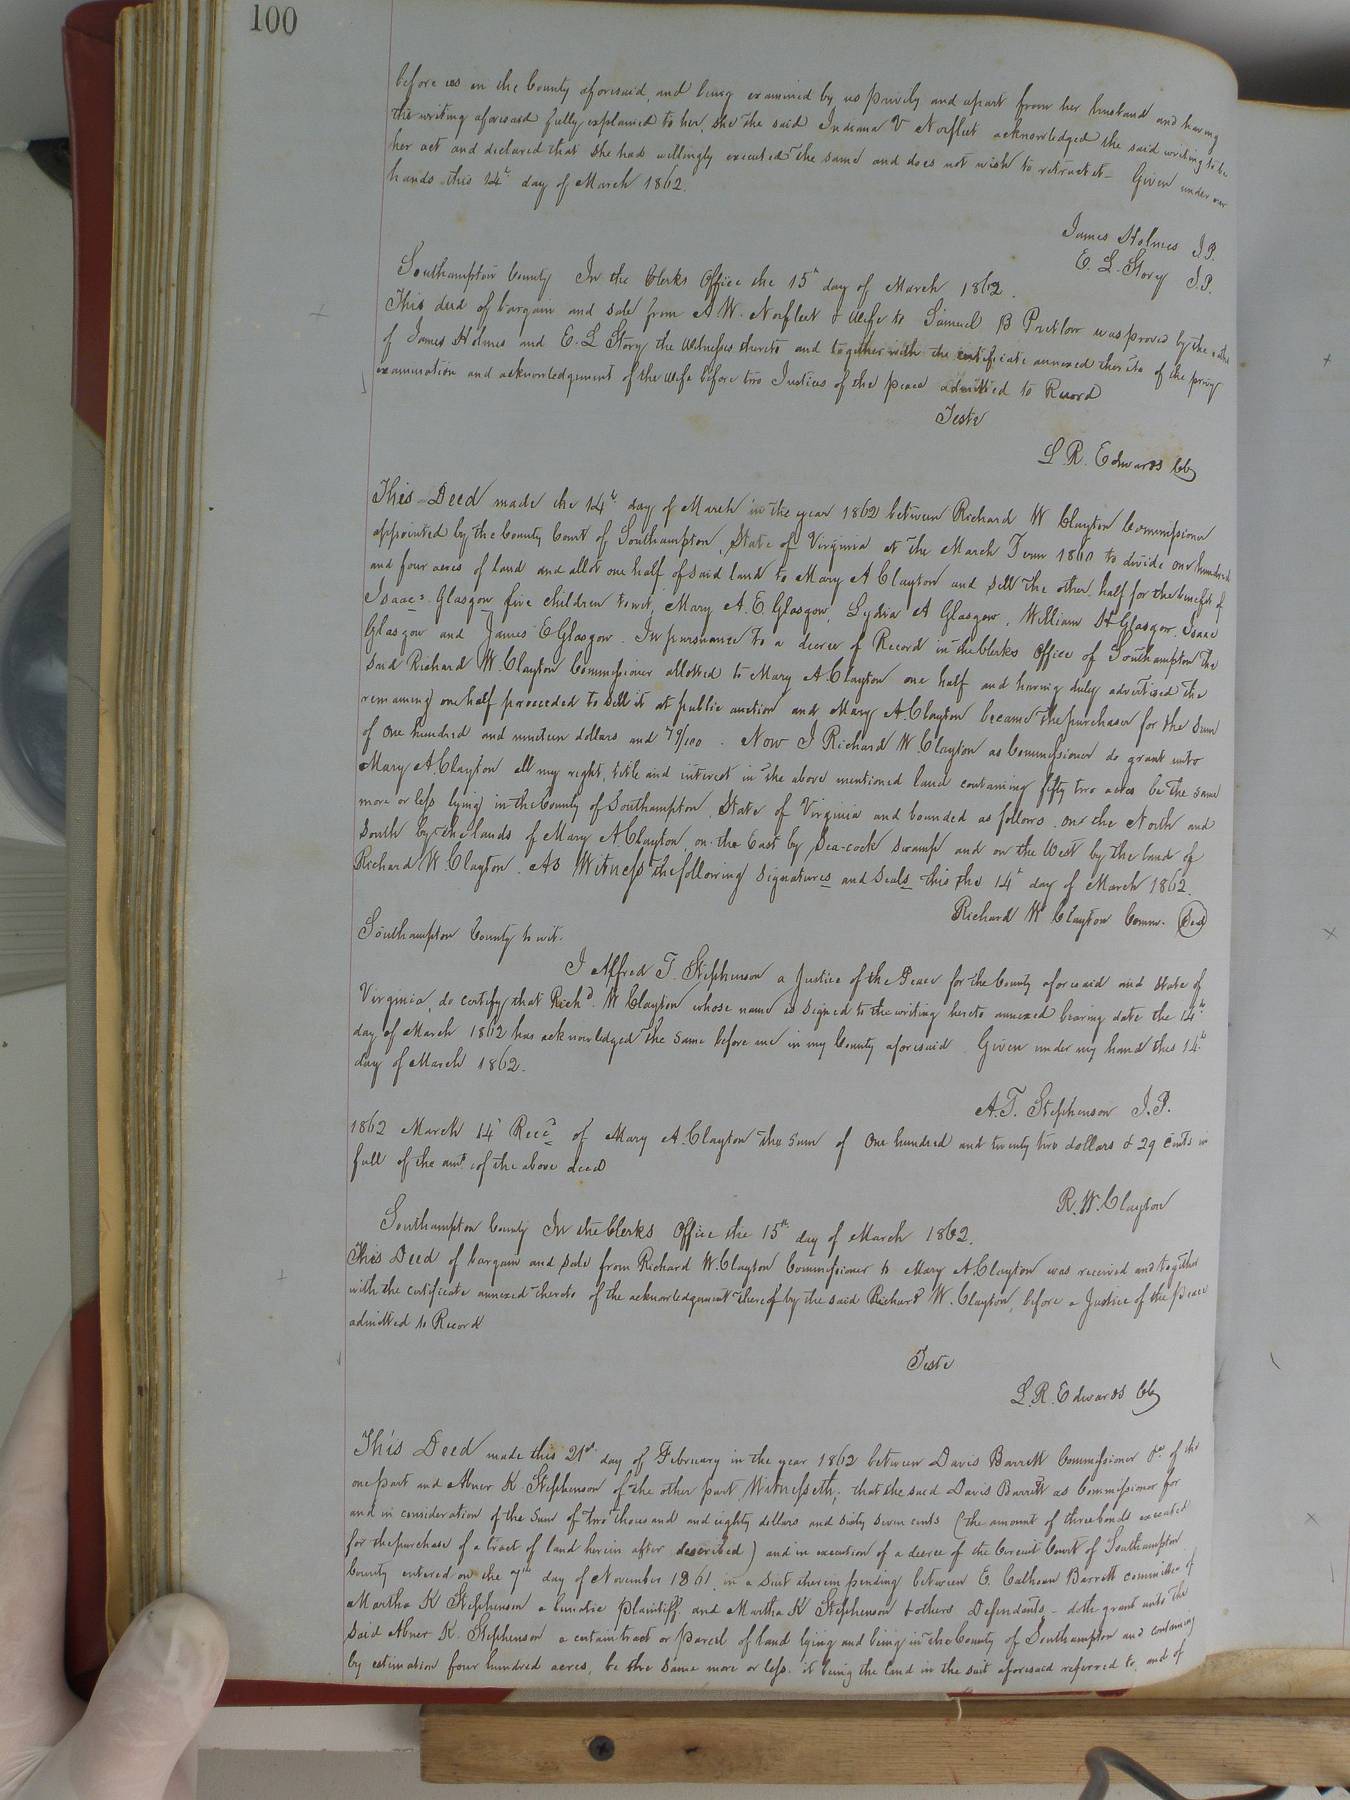 100
before us in the County aforesaid, and being examined by us privily and apart from her husband and having
the writing aforesaid fully explained to her, she the said Indiana V Norfleet acknowledged the said writing to be
her act and declared that she had willingly executed the same and does not wish to retract it - Given under our
hands this 14th day of March 1862.
James Holmes J.P.
E. L. Story J.P.
Southampton County In the Clerks Office the 15th day of March 1862.
This deed of bargain and sale from A W. Norfleet & wife to Samuel B Pretlow was proved by the oaths
of James Holmes and E. L Story the witnesses thereto and together with the certificate annexed thereto of the privy
examination and acknowledgement of the wife before two Justices of the peace admitted to Record
Teste
L R. Edwards CC
This Deed made the 14th day of March in the year 1862 between Richard W Clayton Commissioner
appointed by the County Court of Southampton, State of Virginia at the March Term 1860 to divide one hundred
and four acres of land and allot one half of said land to Mary A Clayton and sell the other half for the benefit of
Isaac Glasgow five children to wit, Mary A. E. Glasgow, Lydia A Glasgow, William H Glasgow, Isaac
Glasgow and James E Glasgow. In pursuance to a decree of Record in the Clerks Office of Southampton the
said Richard W. Clayton Commissioner allotted to Mary A Clayton one half and having duly advertised the
remaining one half proceeded to sell it at public auction and Mary A. Clayton became the purchaser for the sum
of one hundred and nineteen dollars and 79/100. Now I Richard W. Clayton as Commissioner do grant unto
Mary A. Clayton all my right, title and interest in the above mentioned land containing fifty two acres be the same
more or less lying in the County of Southampton, State of Virginia and bounded as follows. on the North and
South by the lands of Mary A Clayton, on the East by Sea-cock swamp and on the West by the land of
Richard W. Clayton. As Witness the following signatures and seals this the 14th day of March 1862.
Richard W Clayton Comm. Seal
Southampton County to wit.
I Alfred T. Stephenson a Justice of the Peace for the County aforesaid and State of
Virginia, do certify that Richd. W Clayton whose name is signed to the writing hereto annexed bearing date the 14th
day of March 1862 has acknowledged the same before me in my County aforesaid. Given under my hand this 14th
day of March 1862.
A. T. Stephenson J. P.
1862 March 14th Recd of Mary A. Clayton the sum of One hundred and twenty two dollars & 29 cents in
full of the amt. of the above deed
R. W. Clayton
Southampton County In the Clerks Office the 15th day of March 1862.
This Deed of bargain and sale from Richard W. Clayton Commissioner to Mary A. Clayton was received and together
with the certificate annexed thereto of the acknowledgement thereof by the said Richard W. Clayton, before a Justice of the peace
admitted to Record
Teste
L. R. Edwards CC
This Deed made this 21st day of February in the year 1862 between Davis Barrett Commissioner &c of the
one part and Abner K. Stephenson of the other part Witnesseth; that the said Davis Barrett as Commissioner for
and in consideration of the sum of two thousand and eighty dollars and sixty seven cents (the amount of three bonds executed
for the purchase of a tract of land herein after described) and in execution of a decree of the Circuit Court of Southampton
County entered on the 7th day of November 1861 in a suit therein pending between E. Calhoun Barrett committee of
Martha K Stephenson a lunatic Plaintiff, and Martha K Stephenson & others Defendants - doth grant unto the
said Abner K. Stephenson a certain tract or parcel of land lying and being in the County of Southampton and containing
by estimation four hundred acres, be the same more or less. it being the land in the suit aforesaid referred to, and of